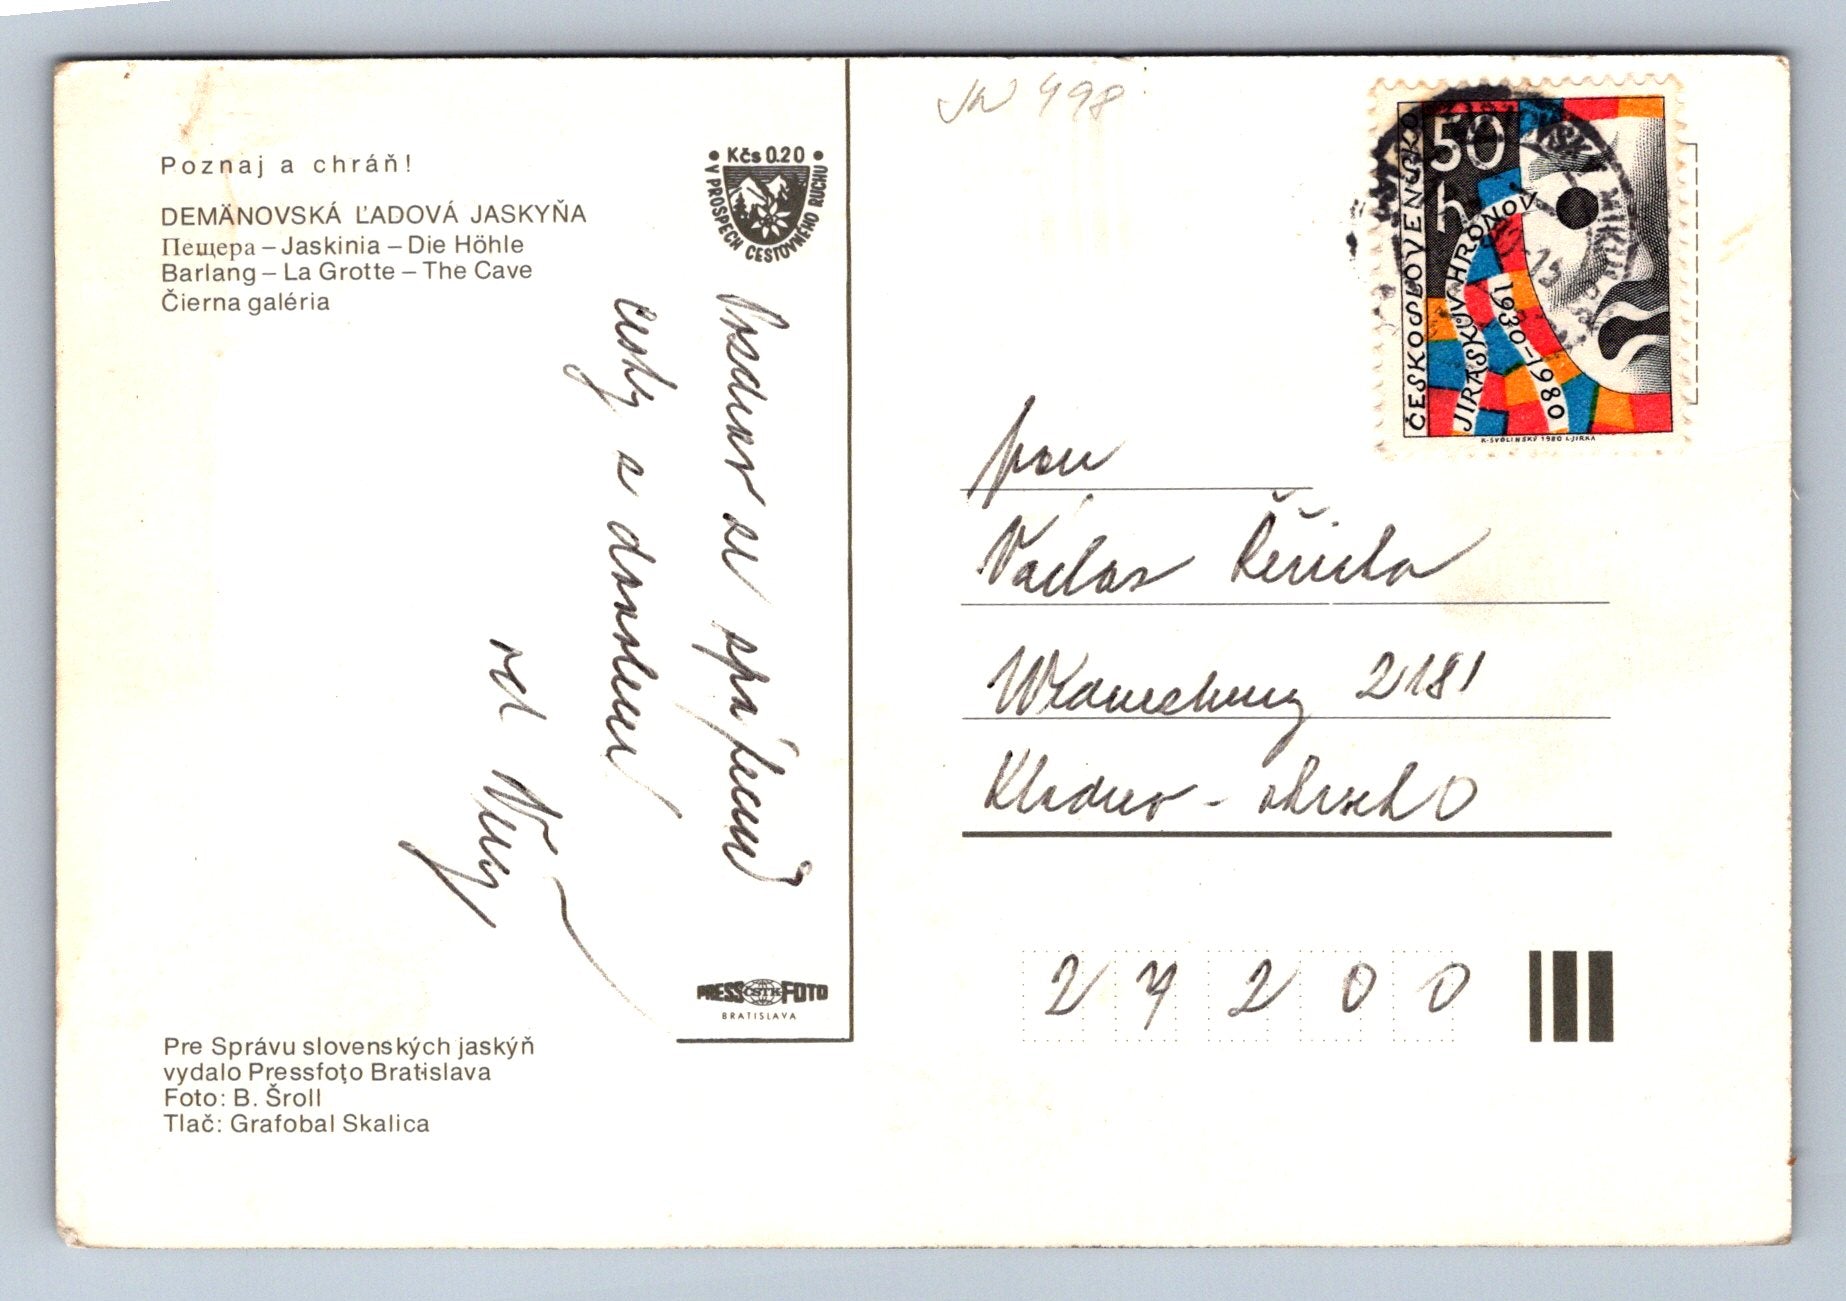 Poznaj a chráň!
DEMÄNOVSKÁ ĽADOVÁ JASKYŇA
Пещера – Jaskinia – Die Höhle
Barlang – La Grotte – The Cave
Čierna galéria
• Kčs 0.20 •
V PROSPECH CESTOVNÉHO RUCHU
Pozdrav ze zpáteční
cesty z dovolené
od
PRESS ČSTK FOTO
BRATISLAVA
Pre Správu slovenských jaskýň
vydalo Pressfoto Bratislava
Foto: B. Šroll
Tlač: Grafobal Skalica
498
ČESKOSLOVENSKO
50 h
JIRÁSKŮV HRONOV
1930–1980
K. SVOLINSKÝ 1980 L. JIRKA
pan
Václav Řeřicha
2181
Kladno
27200